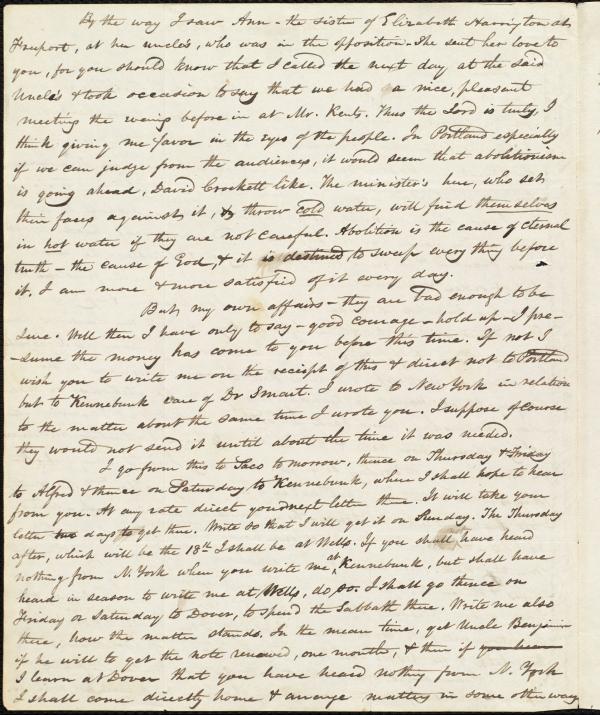 By the way I saw Ann - the sister of Elizabeth Harrington at
Freeport, at her uncle's, who was in the opposition - She sent her love to
you, for you should know that I called the next day at the said
Uncle's & took occasion to say that we had a nice, pleasant
meeting the evening before in at Mr. Kents. Thus the Lord is truly, I
think giving me favor in the eyes of the people. In Portland especially
if we can judge from the audiences, it would seem that abolitionism
is going ahead, David Crockett like. The minister's here, who set
their faces against it, & throw cold water, will find themselves
in hot water if they are not careful. Abolition is the cause of eternal
truth - the cause of God, & it is destined to sweep every thing before
it. I am more & more satisfied of it every day.
But, my own affairs - they are bad enough to be
sure. Well then I have only to say - good courage - hold up - I pre-
-sume the money has come to you before this time. If not I
wish you to write me on the receipt of this & direct not to Portland
but to Kennebunk care of Dr Smart. I wrote to New York in relation
to the matter about the same time I wrote you. I suppose of course
they would not send it until about the time it was needed.
I go from this to Saco to morrow, thence on Thursday & Friday
to Alfred & thence on Saturday to Kennebunk, where I shall hope to hear
from you. At any rate direct your next letter there. It will take your
letter two days to get there. Write so that I will get it on Sunday. The Thursday
after, which will be the 18th I shall be at Wells. If you shall have heard
nothing from N. York when you write me at Kennebunk, but shall have
heard in season to write me at Wells, do so. I shall go thence on
Friday or Saturday to Dover, to spend the Sabbath there. Write me also
there, how the matter stands. In the mean time, get Uncle Benjamin
if he will to get the note renewed, one months, & then if you hear
I learn at Dover that you have heard nothing from N. York
I shall come directly home & arrange matters in some other way